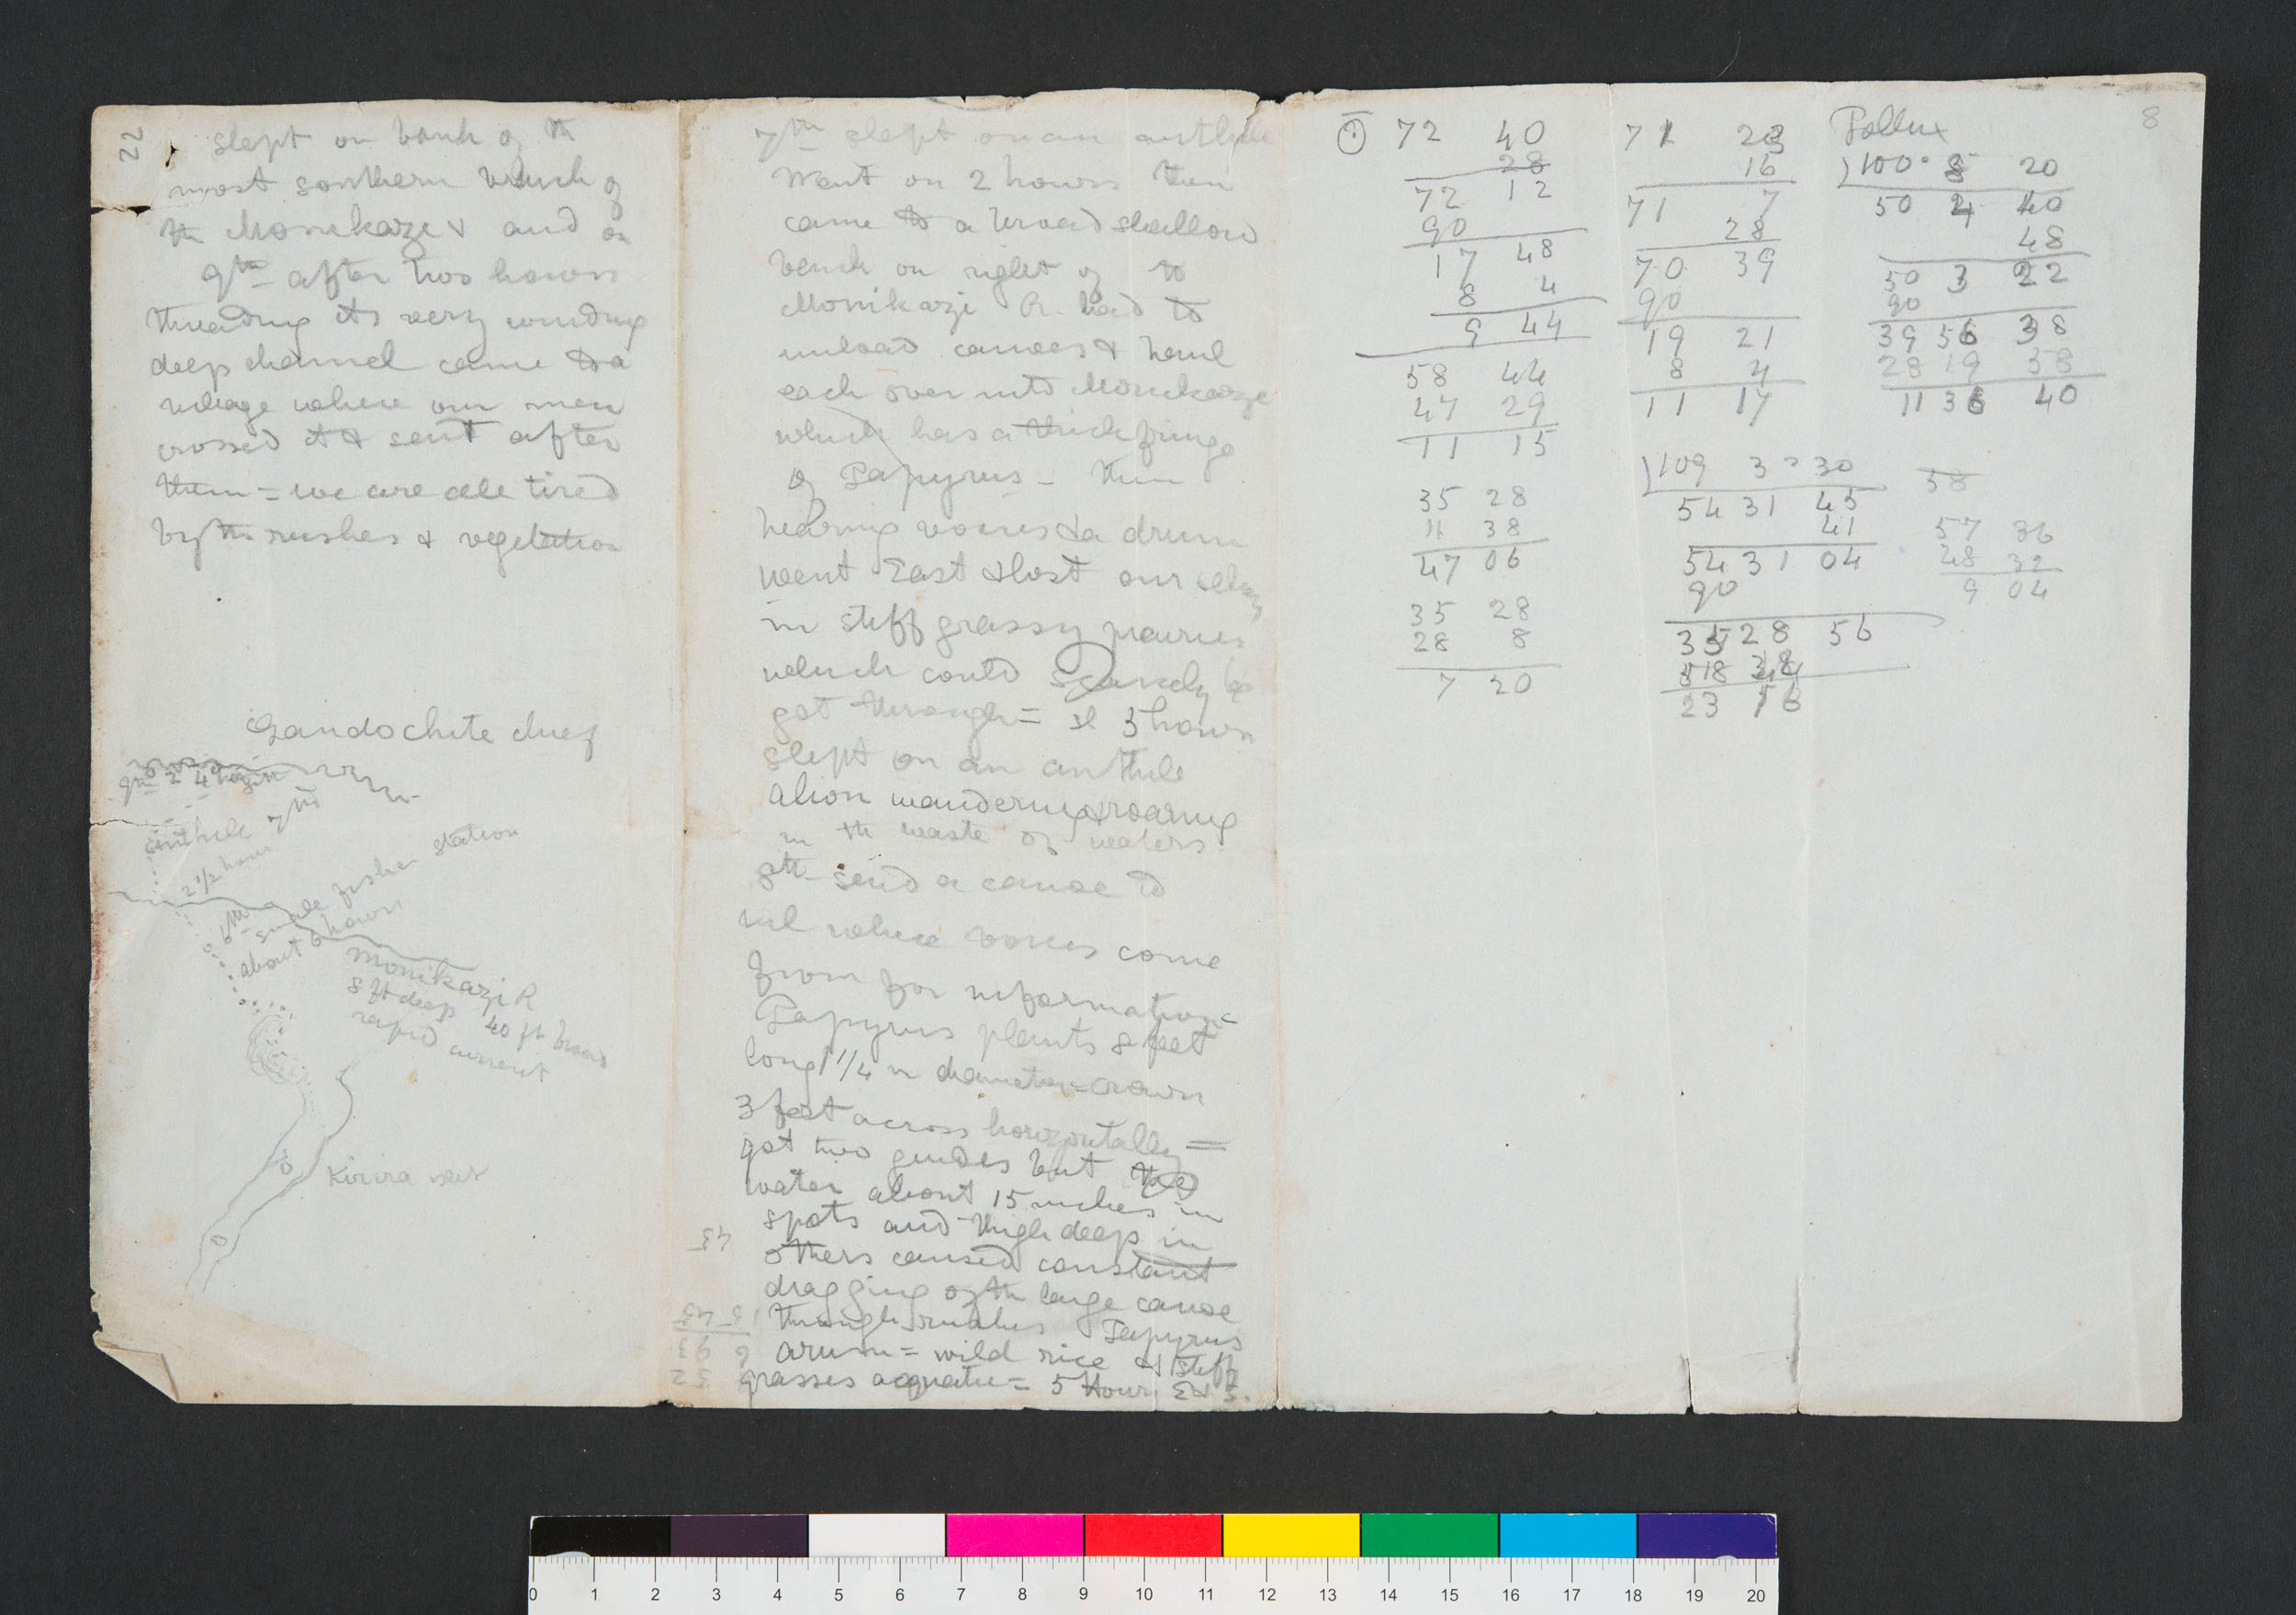 22
slept on bank of the
most southern branch of
the Monikazi & and on
9th after two hours
threading its very winding
deep channel came to a
village where our men
crossed it & sent after
them = we are all tired
by the rushes & vegetation
Gandochite chief
9th 2 4 hours
anthill 7th
2 1/2 hours
6th small fisher station
about 6 hours
Monikazi R
8 ft deep 40 ft broad
rapid current
Kirira
7th slept on an anthill
Went on 2 hours then
came to a broad shallow
bench on right of to
Monikazi R. had to
unload canoes & haul
each over into Monikaze
which has a thick fringe
of Papyrus - then
hearing voices & a drum
went East & lost our selves
in stiff grassy prairies
which could scarcely be
got through = 3 hours
slept on an anthill
a lion wandering & roaring
in the waste of waters
8th - send a canoe to
vil where voices come
from for information =
Papyrus plants 8 feet
long 1 1/4 in diameter = crown
3 feet across horizontally =
got two guides but the
water about 15 inches in
spots and thigh deep in
others caused constant
dragging of the large canoe
through rushes Papyrus
arum = wild rice & stiff
grasses aquatic = 5 hours
8
72 40
28
72 12
90
17 48
8 4
9 44
58 44
47 29
11 15
35 28
11 38
47 06
35 28
28 8
7 20
71 23
16
71 7
28
70 39
90
19 21
8 4
11 17
109 3 30
54 31 45
41
54 31 04
90
35 28 56
23 16
Pollux
100° 8 20
50 4 10
48
50 3 22
90
39 56 38
28 19 58
11 36 40
38
57 36
48 32
9 04